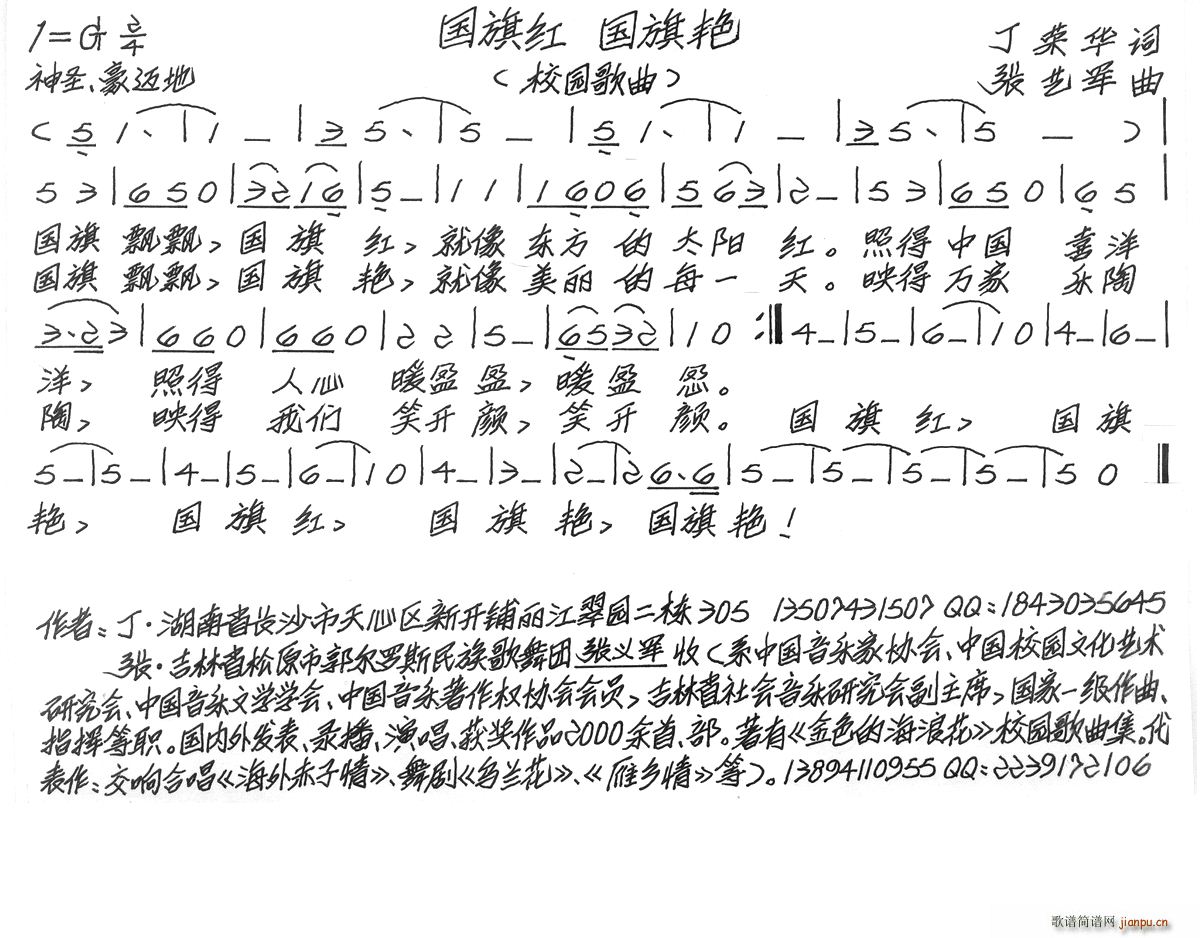 1=G 2/4 国旗红 国旗艳 丁荣华 词
神圣、豪迈地 (校园歌曲) 张艺军 曲
( 5 1、 | 1 — | 3 5、 | 5 — | 5 1、 | 1 — | 3 5、 | 5 — ) |
5 3 | 6 5 0 | 3 2 1 6 | 5 — | 1 1 | 1 6 0 6 | 5 6 3 | 2 — | 5 3 | 6 5 0 | 6 5 |
国旗 飘飘, 国 旗 红, 就像 东方 的 太阳 红。 照得 中国 喜洋
国旗 飘飘, 国 旗 艳, 就像 美丽 的 每一 天。 映得 万家 乐陶
3·2 3 | 6 6 0 | 6 6 0 | 2 2 | 5 — | 6 5 3 2 | 1 0 :‖ 4 — | 5 — | 6 — | 1 0 | 4 — | 6 — |
洋, 照得 人心 暖盈 盈, 暖盈 盈。
陶, 映得 我们 笑开 颜, 笑开 颜。 国 旗 红, 国 旗
5 — | 5 — | 4 — | 5 — | 6 — | 1 0 | 4 — | 3 — | 2 — | 2 6·6 | 5 — | 5 — | 5 — | 5 — | 5 0 ‖
艳, 国 旗 红, 国 旗 艳, 国旗 艳!
作者:丁·湖南省长沙市天心区新开铺丽江翠园二栋305 13507431507 QQ:1843035645
张·吉林省松原市郭尔罗斯民族歌舞团 张义军 收(系中国音乐家协会、中国校园文化艺术
研究会、中国音乐文学学会、中国音乐著作权协会会员,吉林省社会音乐研究会副主席,国家一级作曲、
指挥等职。国内外发表、录播、演唱、获奖作品2000余首、部。著有《金色的海浪花》校园歌曲集。代
表作:交响合唱《海外赤子情》、舞剧《乌兰花》、《雁乡情》等)。13894110955 QQ:2239172106
歌谱简谱网 jianpu.cn